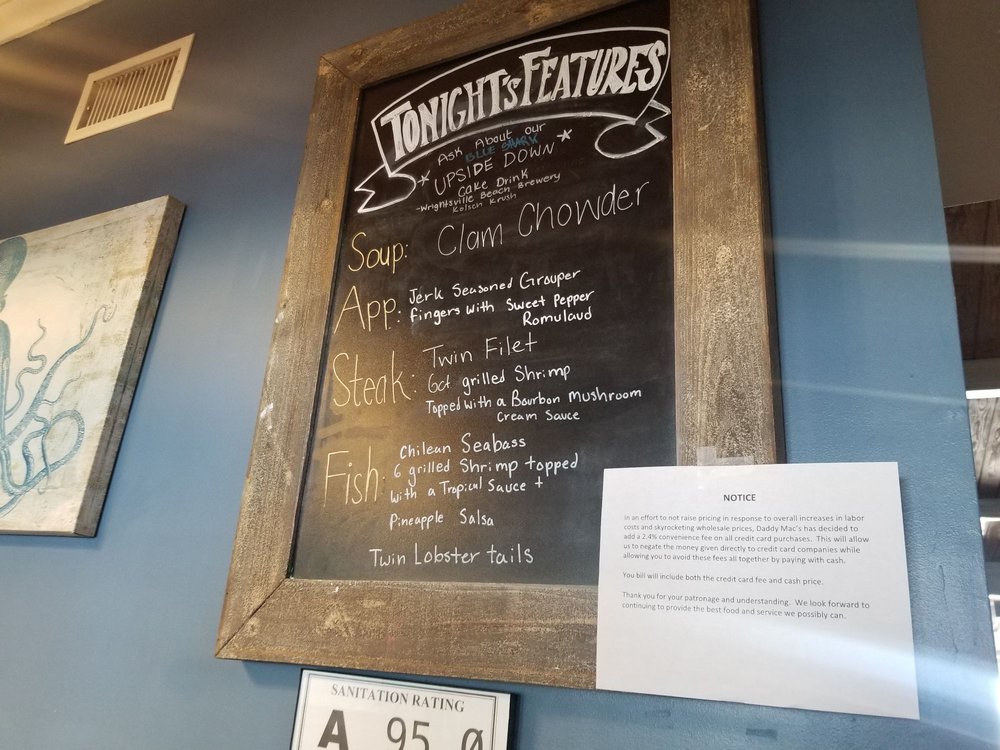 TONIGHT's FEATURES
Ask About our
BLUE SHARK
* UPSIDE DOWN *
Cake Drink
-Wrightsville Beach Brewery
Kolsch Krush
Soup: Clam Chowder
App: Jerk Seasoned Grouper
fingers with Sweet Pepper
Romulaud
Steak: Twin Filet
6ct grilled Shrimp
Topped with a Bourbon Mushroom
Cream Sauce
Fish: Chilean Seabass
6 grilled Shrimp topped
with a Tropical Sauce +
Pineapple Salsa
Twin Lobster tails
NOTICE
In an effort to not raise pricing in response to overall increases in labor
costs and skyrocketing wholesale prices, Daddy Mac's has decided to
add a 2.4% convenience fee on all credit card purchases. This will allow
us to negate the money given directly to credit card companies while
allowing you to avoid these fees all together by paying with cash.
You bill will include both the credit card fee and cash price.
Thank you for your patronage and understanding. We look forward to
continuing to provide the best food and service we possibly can.
SANITATION RATING
A 95 0